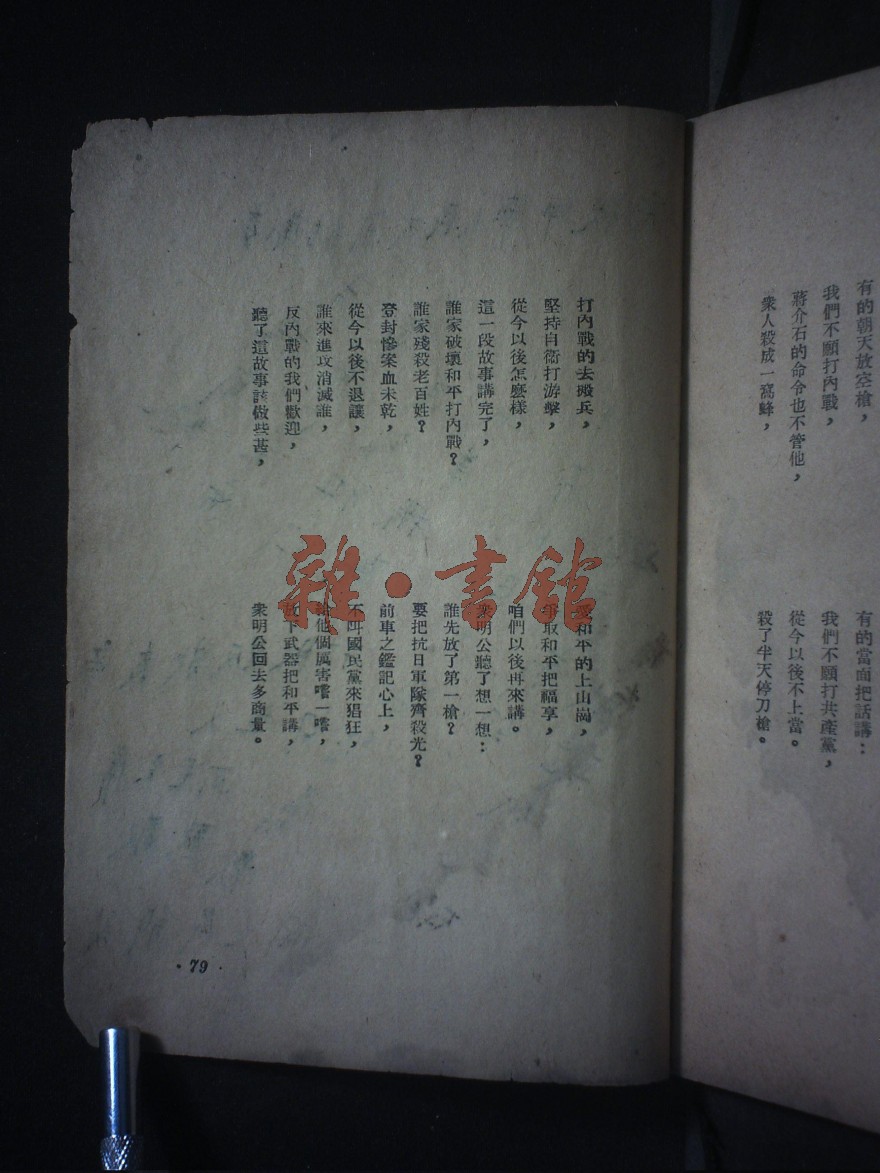 有的朝天放空槍，　有的當面把話講：
我們不願打內戰，　我們不願打共產黨，
蔣介石的命令也不管他，　從今以後不上當。
衆人殺成一窩蜂，　殺了半天停刀槍。
打內戰的去兵，　愛和平的上山崗，
堅持自衛打游擊，　爭取和平把福享，
從今以後怎麼樣，　咱們以後再來講。
這一段故事講完了，　衆明公聽了想一想：
誰家破壞和平打內戰？　誰先放了第一槍？
誰家殘殺老百姓？　要把抗日軍隊齊殺光？
登封慘案血未乾，　前車之鑑記心上，
從今以後不退讓，　不叫國民黨來猖狂，
誰來進攻消滅誰，　給他個厲害嚐一嚐，
反內戰的我們歡迎，　放下武器把和平講，
聽了這故事該做些甚，　衆明公回去多商量。
·79·
雜·書館